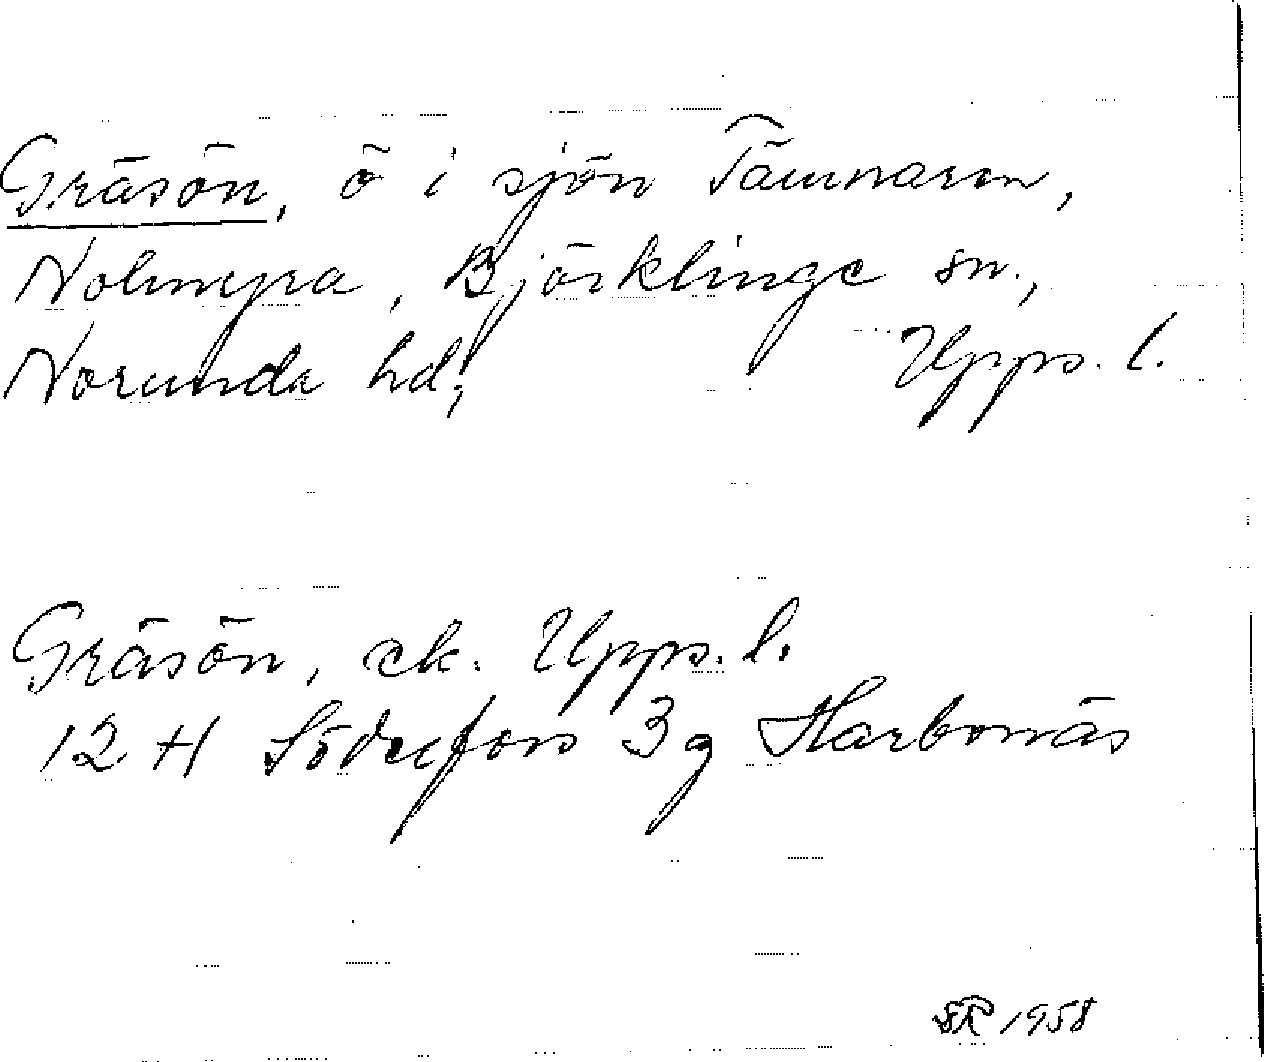 Gräsön, ö i sjön Tämnaren,
Nolmyra, Björklinge sn.,
Norunda hd,          Upps. l.
Gräsön, ek. Upps. l.
12 H Söderfors 3 g Harbonäs
SR 1958